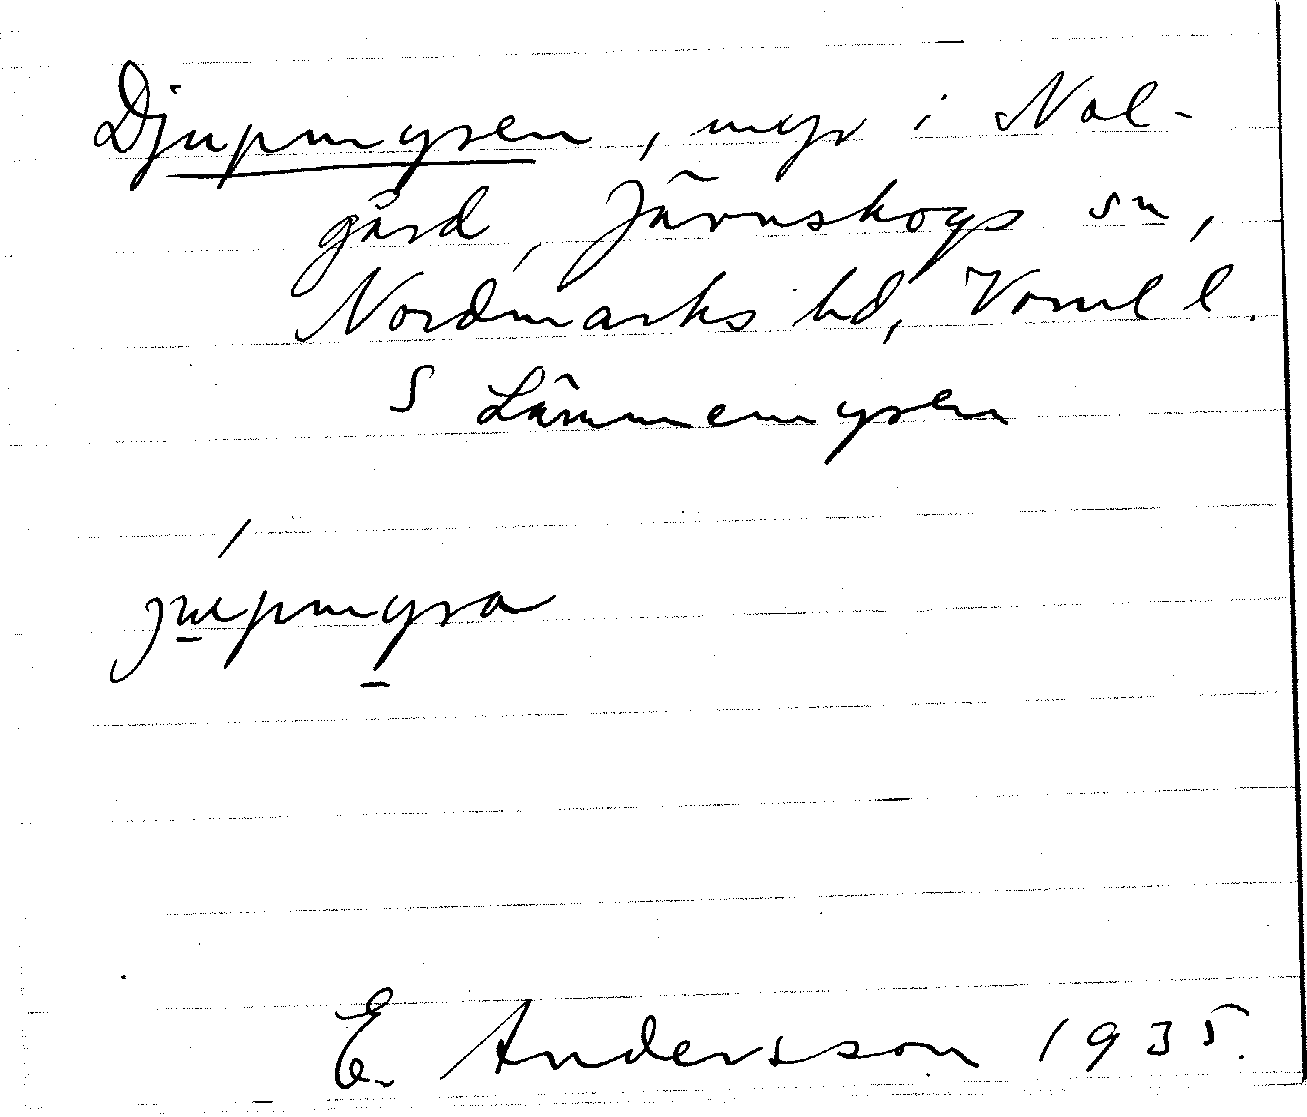 Djupmyren, myr i Nol-
gård, Järnskogs sn,
Nordmarks hd, Värml l.
S Lämmemyren
jupmyra
E. Andersson 1935.